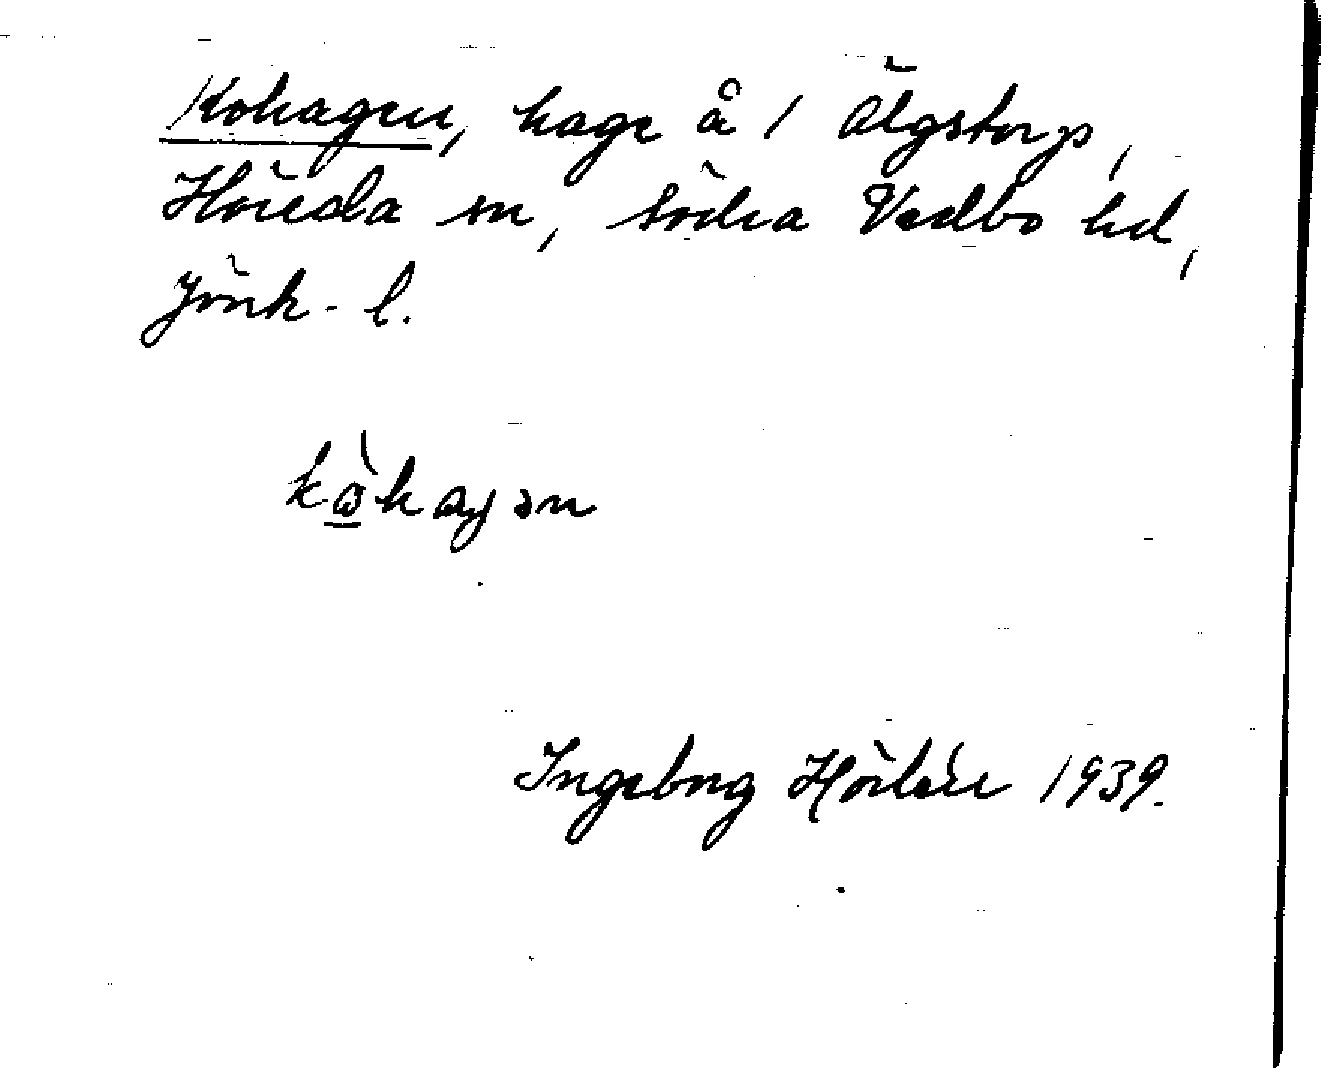 Kohagen, hage å 1 Älgstorp,
Höreda sn, södra Vedbo hd,
Jönk. l.
kὼ̲hagən
Ingeborg Hörlén 1939.